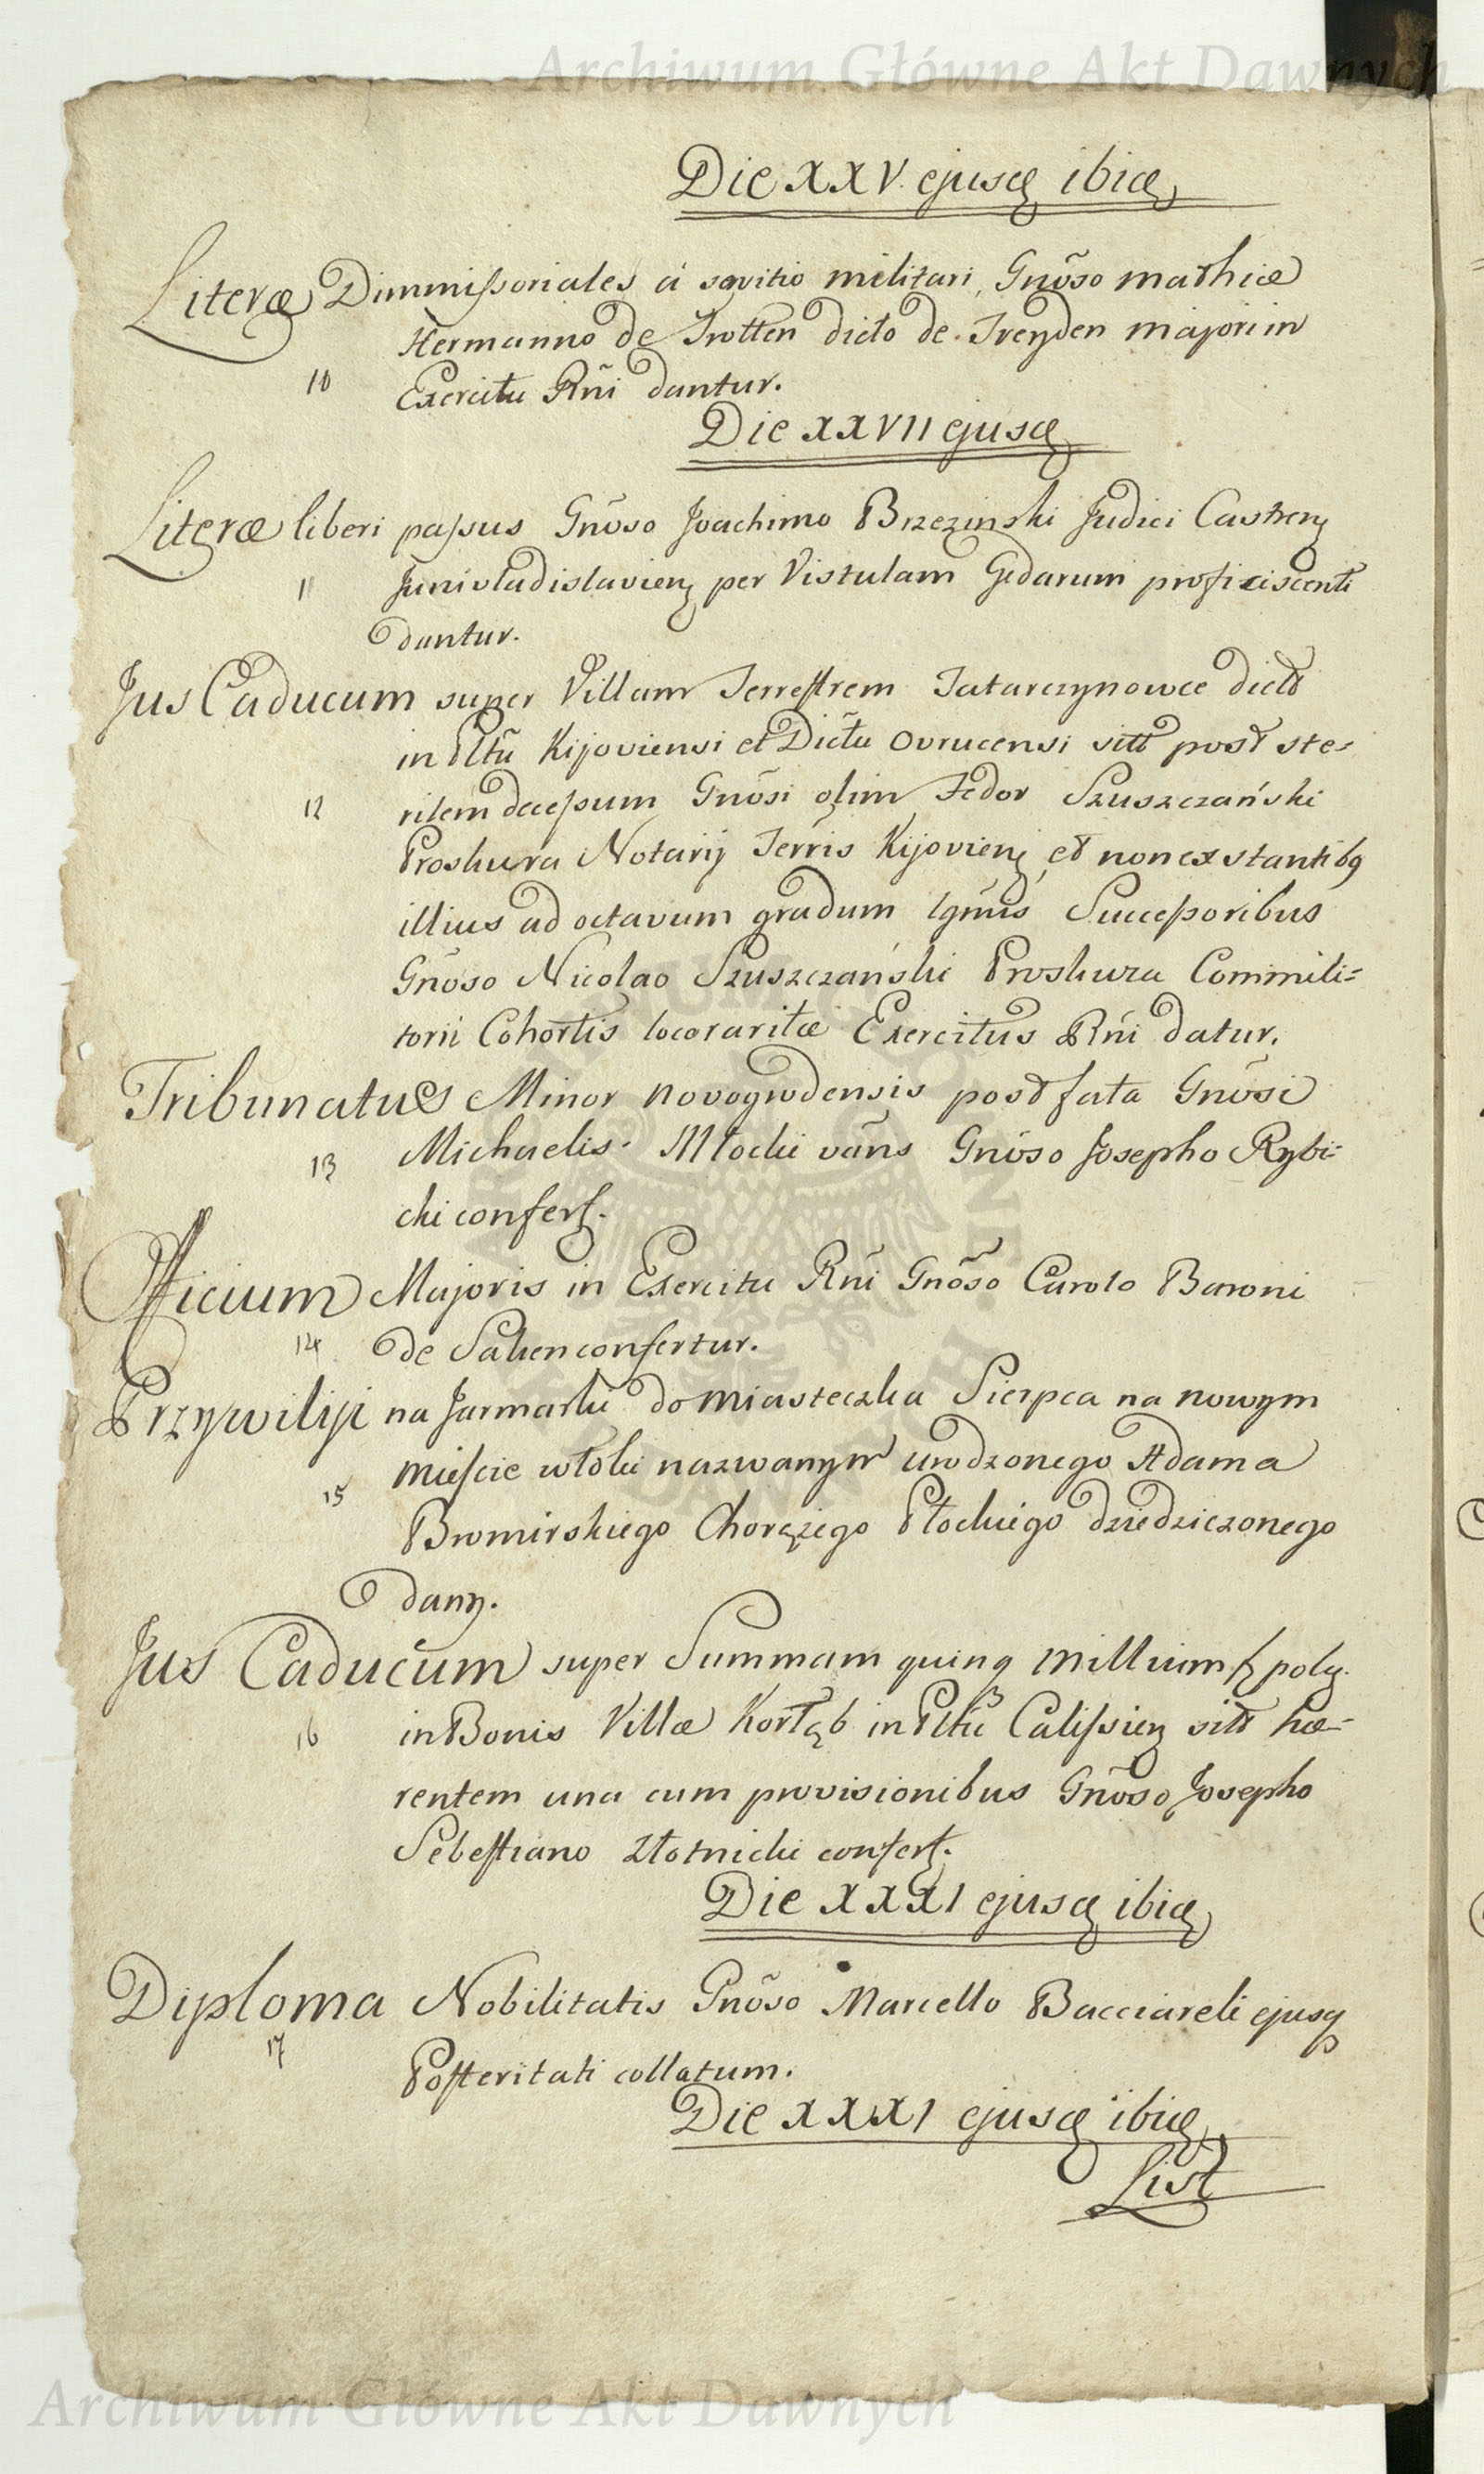 Archiwum Główne Akt Dawnych
Die XXV. ejusd ibid
Literæ Dimmissoriales á servitio militari, Gnõso Mathiæ
Hermanno de Trotten dicto de Treyden majori in
10 Exercitu Rñi dantur.
Die XXVII ejusd
Literæ liberi passus Gnõso Joachimo Brzezinski Judici Castren
11 Junivladislavien per Vistulam Gedanum proficiscenti
dantur.
Jus Caducum super Villam Terrestrem Tatarczynowce dict
in Pltũ Kijoviensi et Dictu Ovrucensi sitt post ste-
12 rilem decessum Gnõsi olim Fedor Szuszczański
Proskura Notarij Terris Kijovien, et non exstantibq
illius ad octavum gradum lgmis Successoribus
Gnõso Nicolao Szuszczański Proskura Commili-
torii Cohortis locoraritæ Exercitus Rñi datur.
Tribunatus Minor Novogrodensis post fata Gnõsi
13 Michaelis Młocki vãns Gnõso Josepho Rybi-
cki confert.
Officium Majoris in Exercitu Rñi Gnõso Carolo Baroni
14 de Saken confertur.
Przywiliji na Jarmarki do Miasteczka Sierpca na nowym
15 mieście włoki nazwanym urodzonego Adama
Bromirskiego Chorążego Płockiego dziedziczonego
dany.
Jus Caducum super Summam quinq millium fl polg.
16 in Bonis Villæ Kortąb in Pltũ Calissien sitt hæ-
rentem una cum provisionibus Gnõso Josepho
Sebestiano Złotnicki confert.
Die XXXI ejusd ibid
Diploma Nobilitatis Gnõso Marcello Bacciareli ejusq
17 Posteritati collatum.
Die XXXI ejusd ibid
List
Archiwum Główne Akt Dawnych